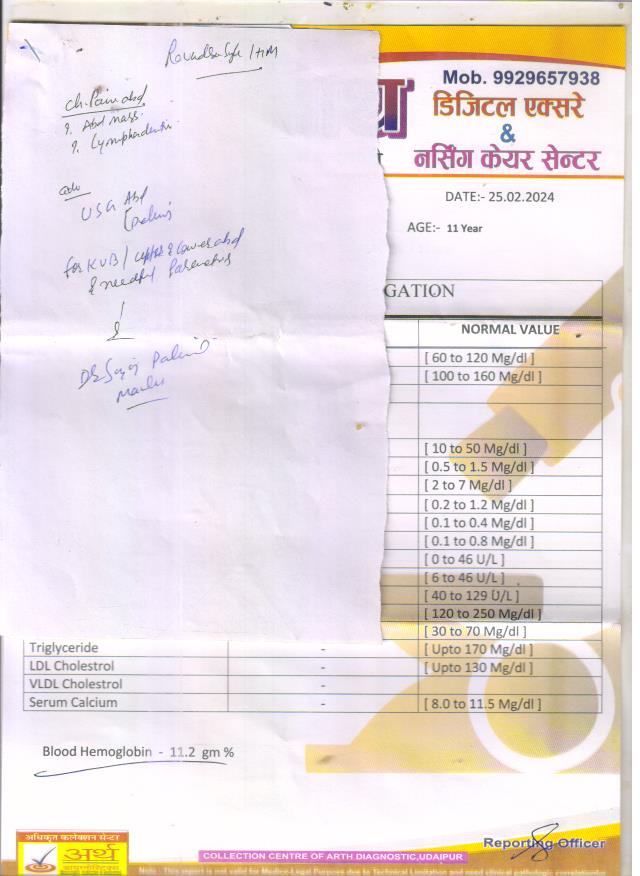 ch. Pain abd
?. Abd mass
?. Lymphadenitis
adv
USG Abd
for KUB / upper & lower abd
& needful Parameters
Mob. 9929657938
डिजिटल एक्सरे
&
नर्सिंग केयर सेन्टर
DATE:- 25.02.2024
AGE:- 11 Year
GATION
NORMAL VALUE
[ 60 to 120 Mg/dl ]
[ 100 to 160 Mg/dl ]
[ 10 to 50 Mg/dl ]
[ 0.5 to 1.5 Mg/dl ]
[ 2 to 7 Mg/dl ]
[ 0.2 to 1.2 Mg/dl ]
[ 0.1 to 0.4 Mg/dl ]
[ 0.1 to 0.8 Mg/dl ]
[ 0 to 46 U/L ]
[ 6 to 46 U/L ]
[ 40 to 129 U/L ]
[ 120 to 250 Mg/dl ]
[ 30 to 70 Mg/dl ]
Triglyceride - [ Upto 170 Mg/dl ]
LDL Cholestrol - [ Upto 130 Mg/dl ]
VLDL Cholestrol -
Serum Calcium - [ 8.0 to 11.5 Mg/dl ]
Blood Hemoglobin - 11.2 gm %
Reporting Officer
अधिकृत कलेक्शन सेन्टर
अर्थ
डायग्नोस्टिक्स
COLLECTION CENTRE OF ARTH DIAGNOSTIC,UDAIPUR
Note : This report is not valid for Medico-Legal Purposes due to Technical Limitation and need clinical pathologic correlation